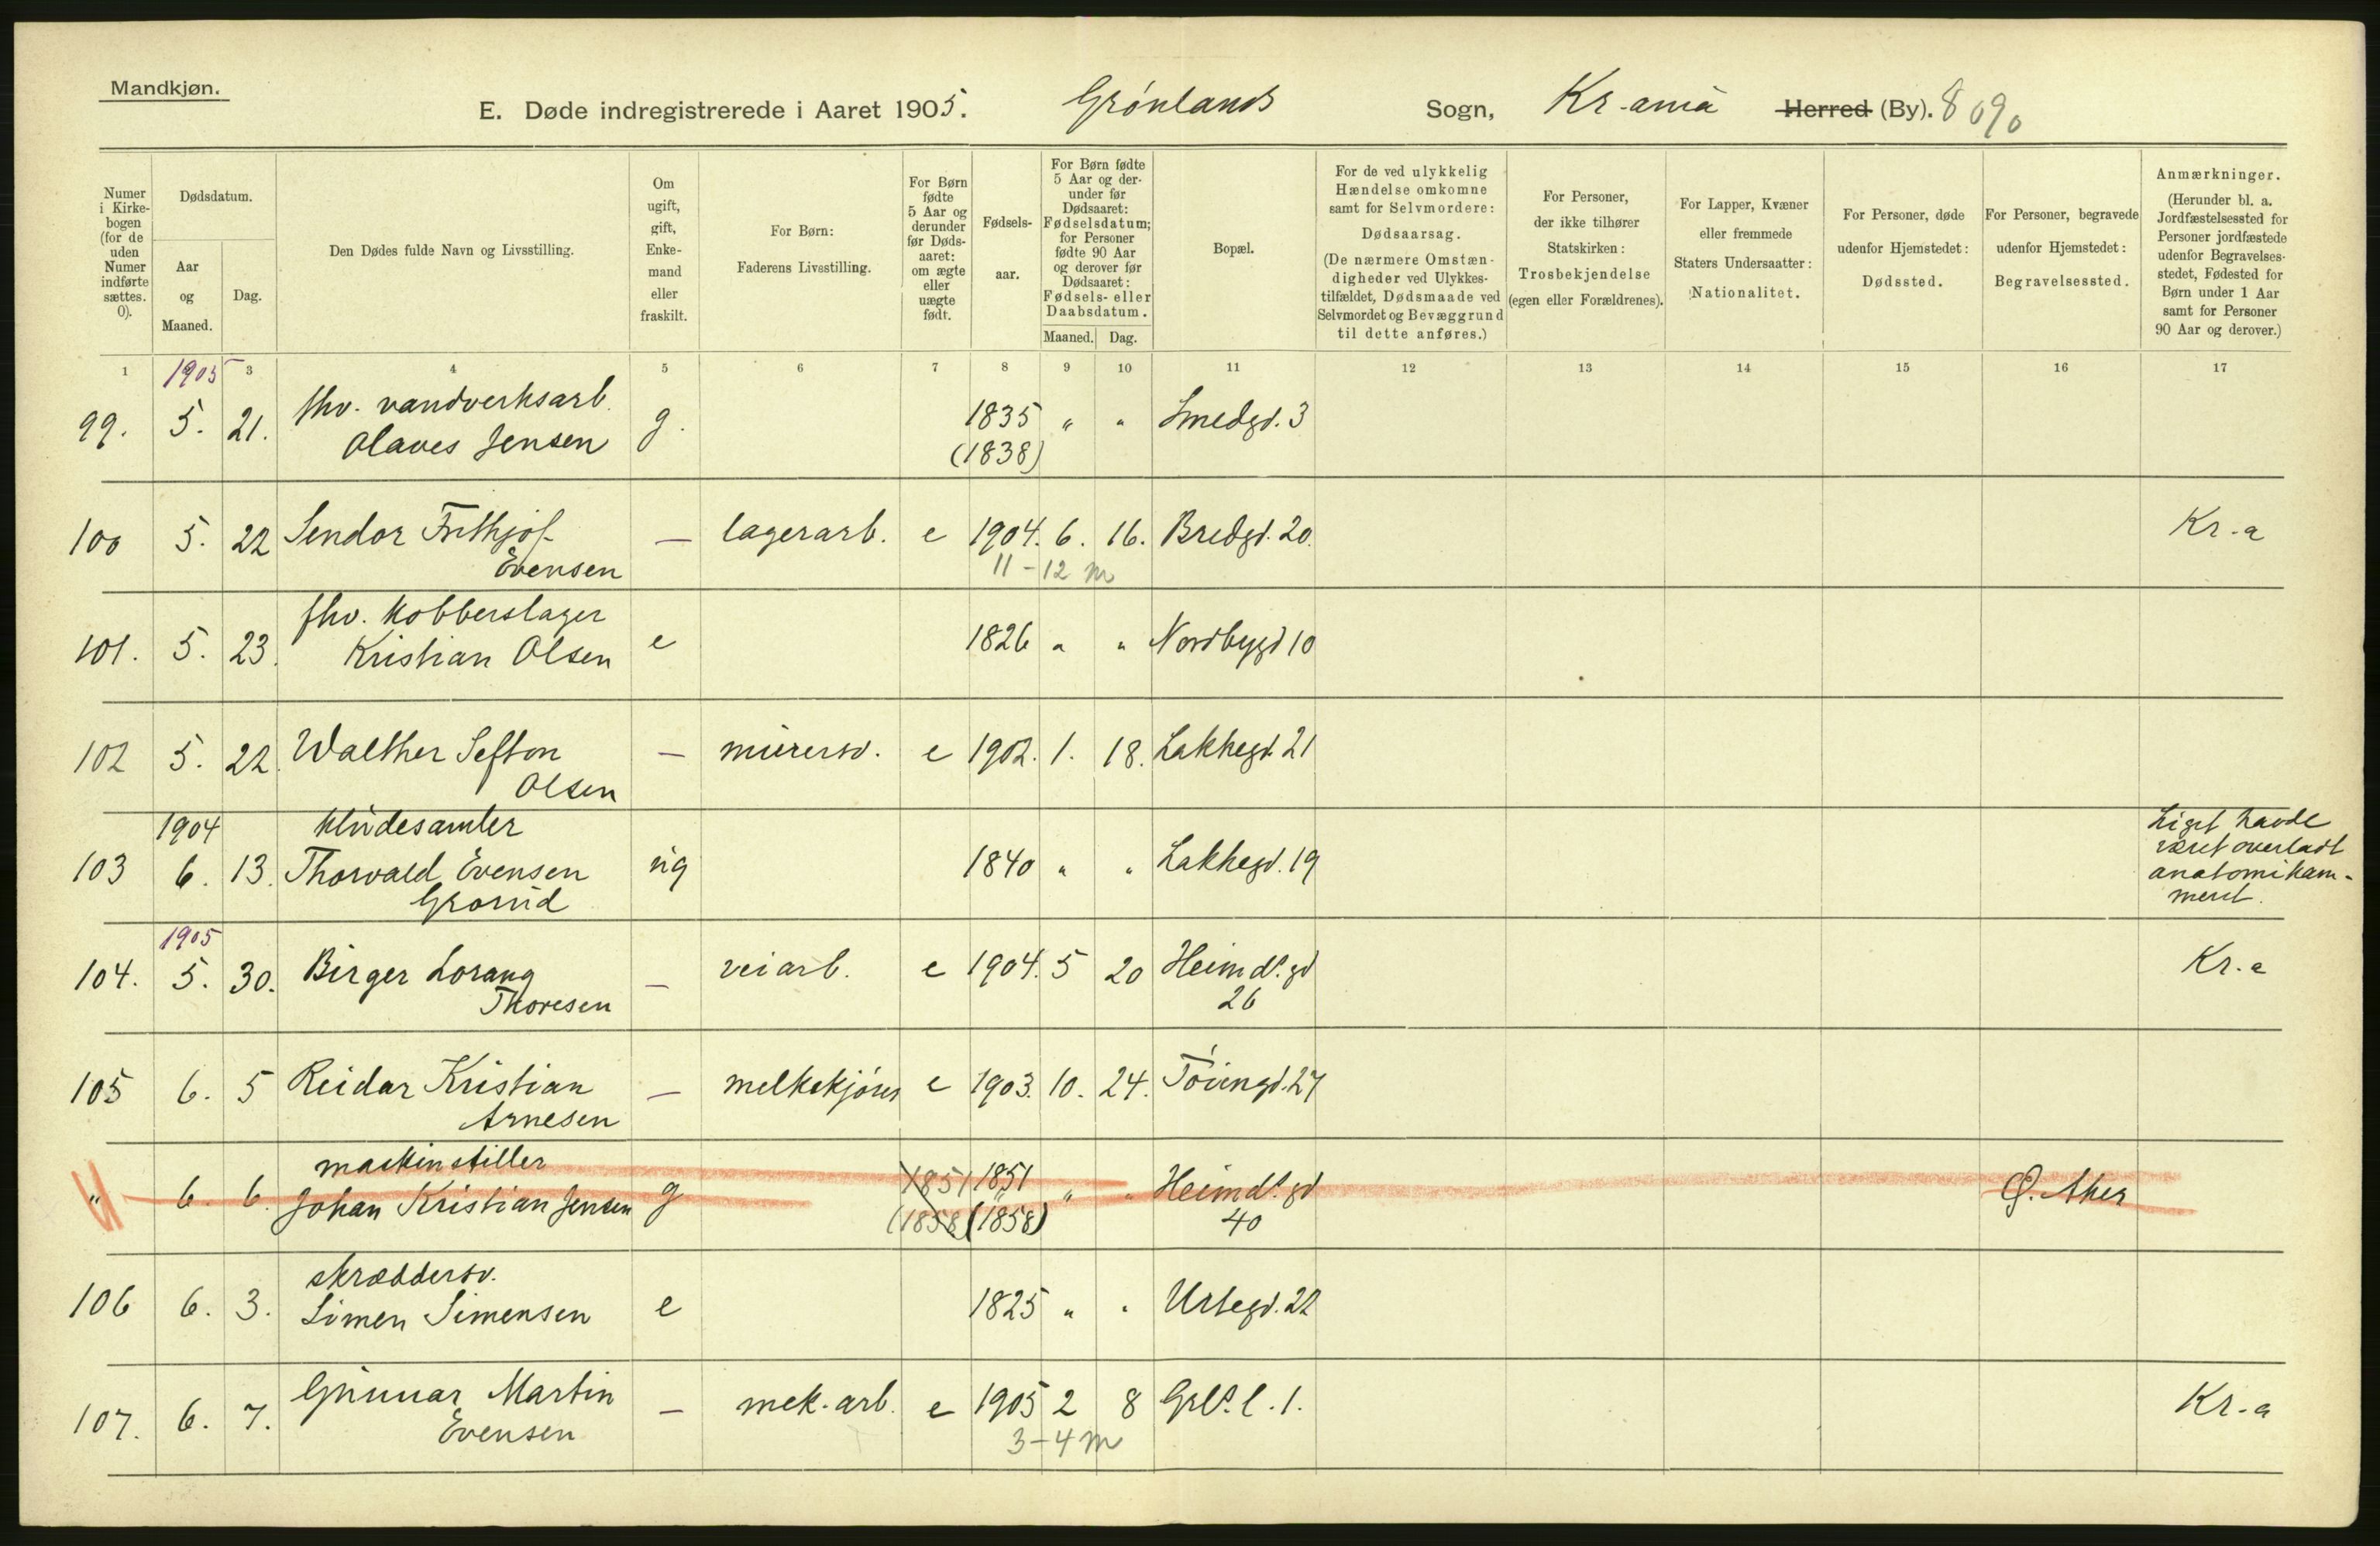 Mandkjøn.
E. Døde indregistrerede i Aaret 1905. Grønlands Sogn, Kr-ania Herred (By). 8090
Numer i Kirkebogen (for de uden Numer indførte sættes. 0).
Dødsdatum.
Aar og Maaned.
Dag.
Den Dødes fulde Navn og Livsstilling.
Om ugift, gift, Enkemand eller fraskilt.
For Børn: Faderens Livsstilling.
For Børn fødte 5 Aar og derunder før Dødsaaret: om ægte eller uægte født.
Fødselsaar.
For Børn fødte 5 Aar og derunder før Dødsaaret: Fødselsdatum; for Personer fødte 90 Aar og derover før Dødsaaret: Fødsels- eller Daabsdatum.
Maaned. Dag.
Bopæl.
For de ved ulykkelig Hændelse omkomne samt for Selvmordere: Dødsaarsag. (De nærmere Omstændigheder ved Ulykkestilfældet, Dødsmaade ved Selvmordet og Bevæggrund til dette anføres.)
For Personer, der ikke tilhører Statskirken: Trosbekjendelse (egen eller Forældrenes).
For Lapper, Kvæner eller fremmede Staters Undersaatter: Nationalitet.
For Personer, døde udenfor Hjemstedet: Dødssted.
For Personer, begravede udenfor Hjemstedet: Begravelsessted.
Anmærkninger. (Herunder bl. a. Jordfæstelsessted for Personer jordfæstede udenfor Begravelsesstedet, Fødested for Børn under 1 Aar samt for Personer 90 Aar og derover.)
1 3 4 5 6 7 8 9 10 11 12 13 14 15 16 17
1905
99. 5. 21. fhv. vandverksarb. g. 1835 " " Smedgd. 3
Olaves Jensen (1838)
100 5. 22 Sendor Frithjof — lagerarb. e 1904. 6. 16. Bredgd. 20. Kr-a
Evensen 11-12 m
fhv. kobberslager
101. 5. 23. Kristian Olsen e 1826 " " Nordbygd 10
102 5. 22. Walther Sefton — murersv. e 1902. 1. 18. Lakkegd. 21
Olsen
1904 kludesamler Liget havde
været overladt
103 6. 13. Thorvald Evensen ug 1840 " " Lakkegd. 19 anatomikam-
Grorud meret.
1905
104. 5. 30. Birger Lorang — veiarb. e 1904. 5 20 Heimds. gd Kr.a
Thoresen 26
105 6. 5 Reidar Kristian — melkekjører e 1903. 10. 24. Tøiengd. 27
Arnesen
maskinstiller 1851 1851
" 6. 6. Johan Kristian Jensen g (1858 (1858) " " Heimds. gd Ø. Aker
40
skræddersv.
106 6. 3. Simen Simensen e 1825 " " Urtegd. 22
107. 6. 7. Gunnar Martin — mek. arb. e 1905 2 8 Grls. l. 1. Kr-a
Evensen 3-4 m